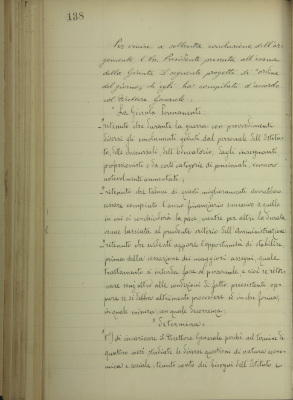 138
Per venire a sollecita conclusione dell'ar-
gomento il Sig. Presidente presenta all'esame
della Giunta il seguente progetto di "ordine
del giorno" che egli ha compilato d'accordo
col Direttore Generale.
"La Giunta Permanente:
Ritenuto che durante la guerra con provvedimenti
diversi gli emolumenti goduti dal personale dell'Istitu-
to, delle Succursali, dell'Educatorio, dagli insegnanti
e da certe categorie di pensionati, vennero
notevolmente aumentati;
Ritenuto che taluni di questi miglioramenti dovrebbero
cessare compiuto l'anno finanziario successivo a quello
in cui si conchiuderà la pace, mentre per altri la durata
venne lasciata al prudente criterio dell'Amministrazione;
Ritenuto che sarebbe apparsa l'opportunità di stabilire,
prima della cessazione dei maggiori assegni, quale
trattamento si intenda fare al personale e cioè se ritor-
nare alle condizioni di fatto preesistenti op-
pure se si debba altrimenti provvedere ed in che forma,
in quale misura, con quale decorrenza;
"Determina:
1°) di incaricare il Direttore Generale perché nel termine di
quattro mesi studiate le diverse questioni di natura econo-
mica e sociale, tenuto conto dei bisogni dell'Istituto e